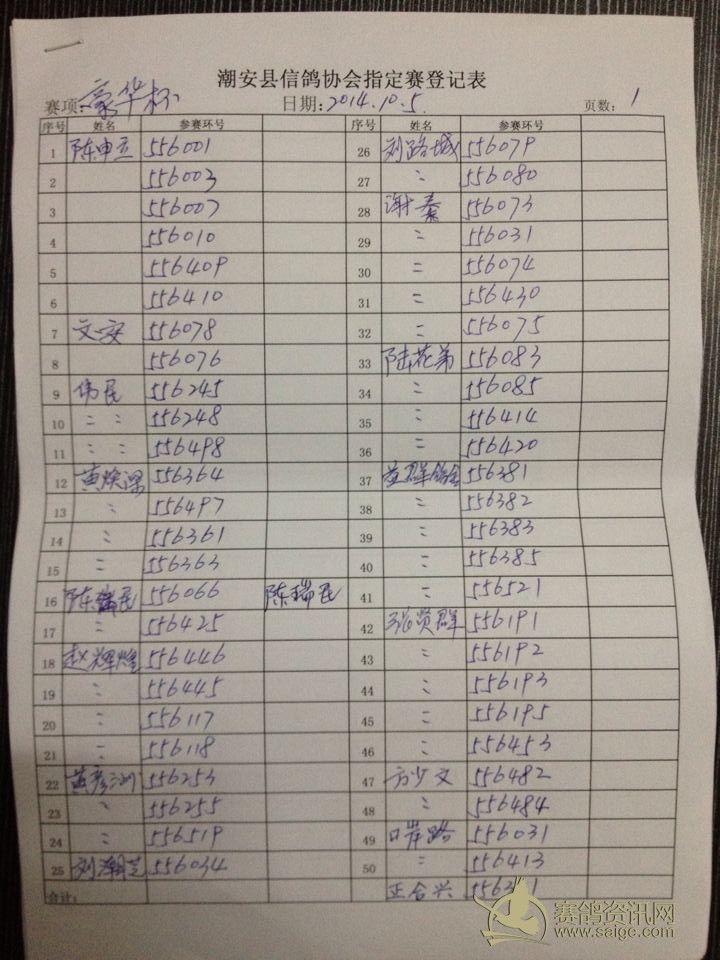 潮安县信鸽协会指定赛登记表
赛项:豪华杯 日期:2014.10.5. 页数:1
序号 姓名 参赛环号 序号 姓名 参赛环号
1 陈申立 556001 26 刘路城 556079
2 556003 27 〃 556080
3 556007 28 谢秦 556073
4 556010 29 〃 556031
5 556409 30 〃 556074
6 556410 31 〃 556430
7 文安 556078 32 〃 556075
8 556076 33 陆花弟 556083
9 伟民 556245 34 〃 556085
10 〃 〃 556248 35 〃 556414
11 〃 〃 556498 36 〃 556420
12 黄焕 556364 37 群鸽舍 556381
13 〃 556497 38 〃 556382
14 〃 556361 39 〃 556383
15 〃 556363 40 〃 556385
16 陈瑞民 556066 陈瑞民 41 〃 556521
17 〃 556425 42 张贤群 556191
18 赵辉煌 556446 43 〃 556192
19 〃 556445 44 〃 556193
20 〃 556117 45 〃 556195
21 〃 556118 46 〃 556453
22 黄彦洲 556253 47 方少文 556482
23 〃 556255 48 〃 556484
24 〃 556519 49 口岸路 556031
25 刘潮芝 556034 50 〃 556413
合计: 正合兴
赛鸽资讯网
www.saige.com